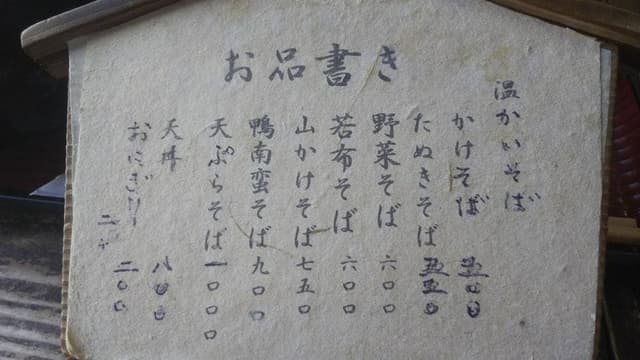 お品書き
温かいそば
かけそば 五〇〇
たぬきそば 五五〇
野菜そば 六〇〇
若布そば 六〇〇
山かけそば 七五〇
鴨南蛮そば 九〇〇
天ぷらそば 一〇〇〇
天丼 八〇〇
おにぎり 二〇〇